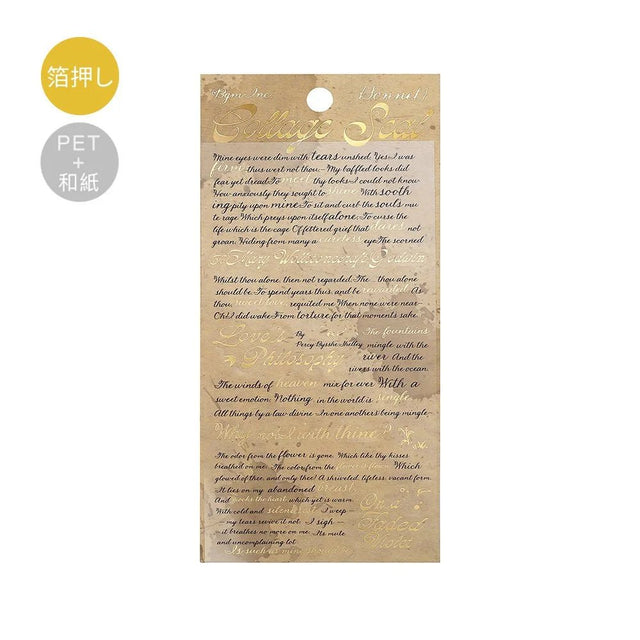 箔押し
PET
+
和紙
Bgm Inc.
Collage Seal
Mine eyes were dim with tears unshed; Yes, I was
firm - thus wert not thou;- My baffled looks did
fear yet dread To meet thy looks - I could not know
How anxiously they sought to shine With sooth
ing pity upon mine. To sit and curb the souls mu
te rage Which preys upon itself alone; To curse the
life which is the cage Of fettered grief that dares not
groan, Hiding from many a careless eye The scorned
To Mary Wollstonecraft Godwin
Whilst thou alone, then not regarded, The thou alone
should be, To spend years thus, and be rewarded, As
thou, sweet love, requited me When none were near-
Oh! I did wake From torture for that moments sake.
Love's Philosophy
By
Percy Bysshe Shelley
The fountains
mingle with the
river And the
rivers with the ocean,
The winds of heaven mix for ever With a
sweet emotion; Nothing in the world is single,
All things by a law divine In one anothers being mingle-
Why not I with thine?
The odor from the flower is gone, Which like thy kisses
breathed on me; The color from the flower is flown, Which
glowed of thee, and only thee! A shriveled, lifeless, vacant form,
It lies on my abandoned breast,
And mocks the heart, which yet is warm,
With cold and silent rest. I weep
- my tears revive it not; I sigh -
- it breathes no more on me; Its mute
and uncomplaining lot
Is such as mine should be.
On a
Faded
Violet